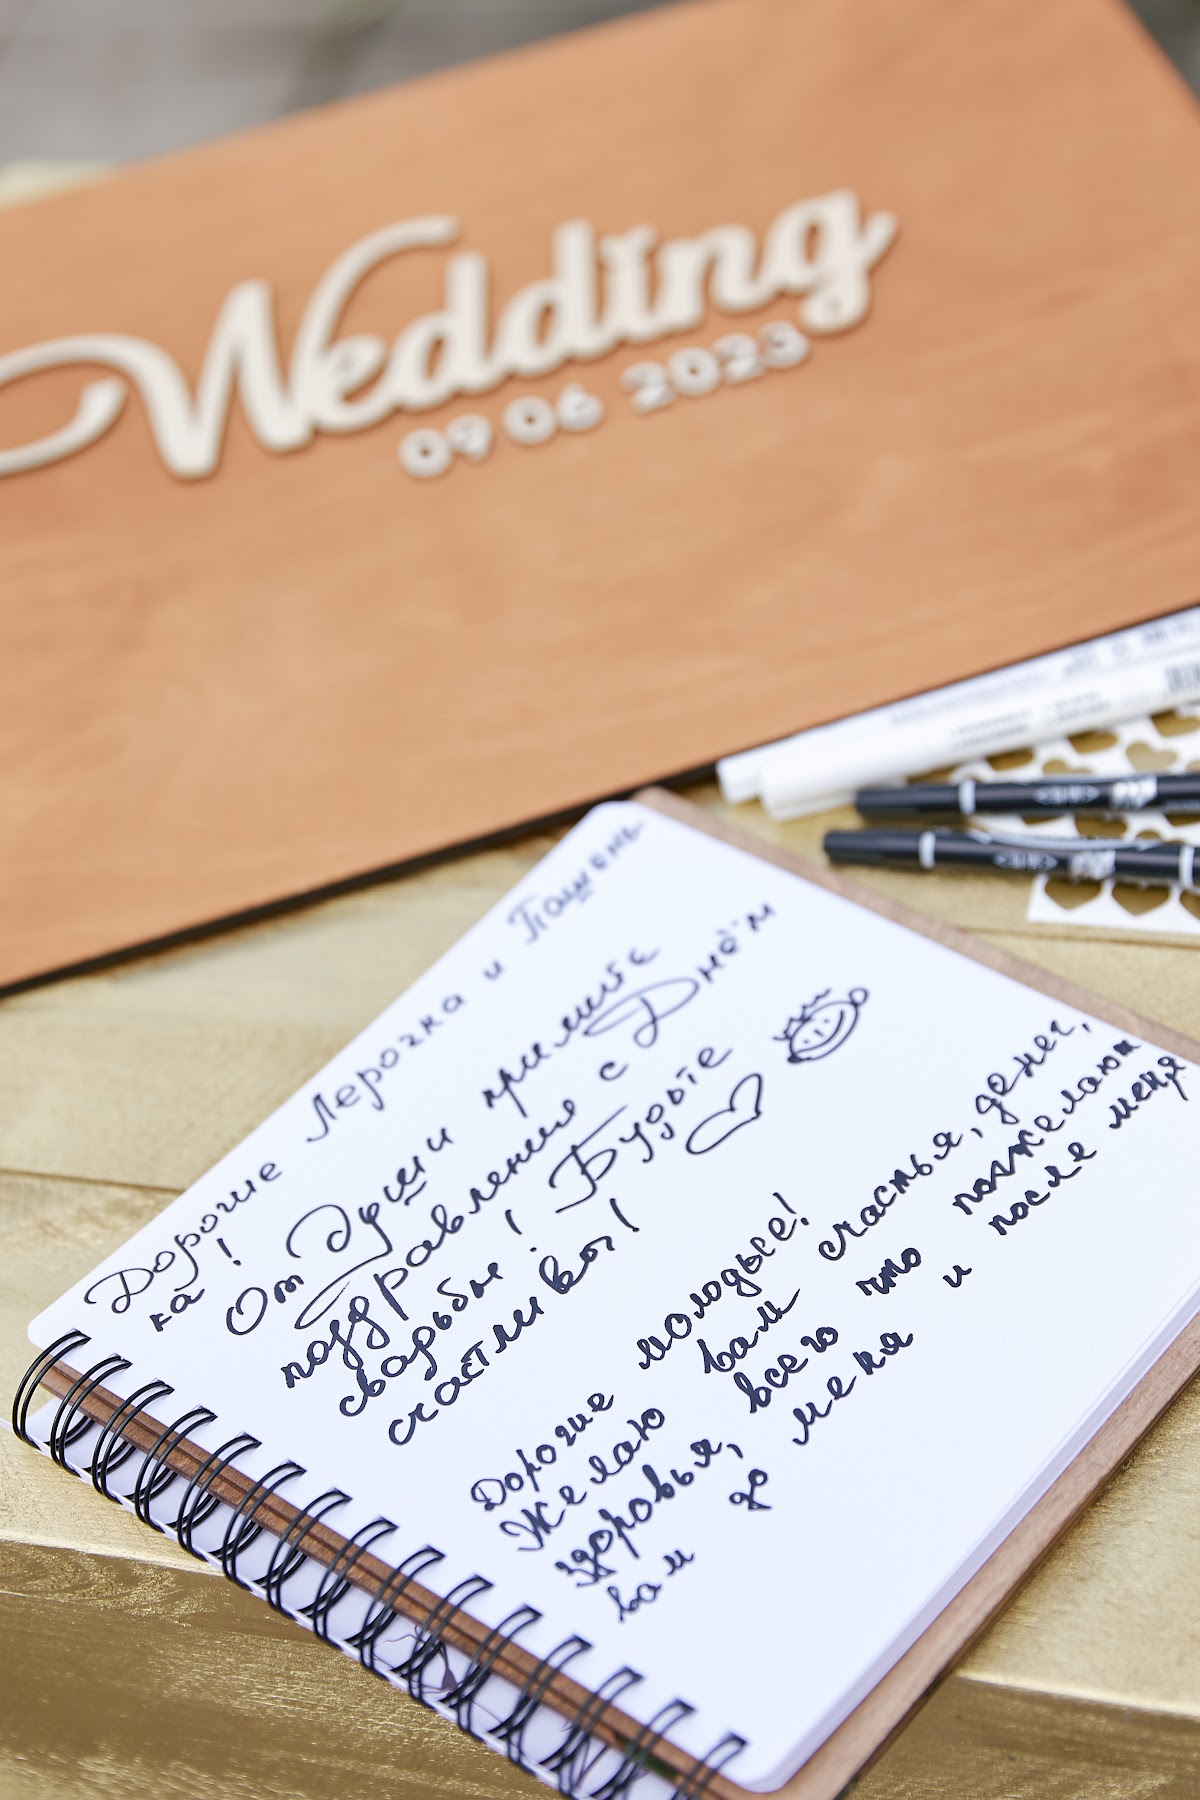 Wedding
09 06 2023
Дорогие Лерочка и Пашень
ка!
От души примите
поздравления с Днём
свадьбы! Будьте
счастливы!
Дорогие молодые!
Желаю вам счастья, денег,
здоровья, всего что пожелают
вам до меня и после меня